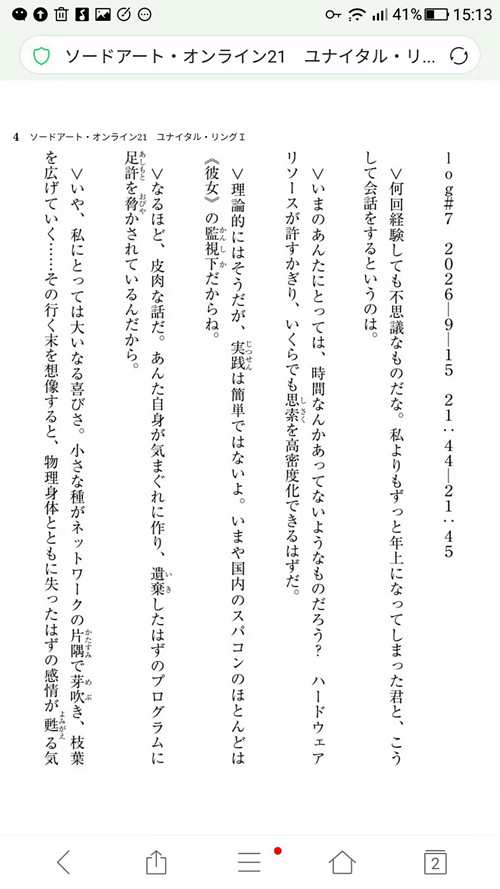 41% 15:13
ソードアート・オンライン21　ユナイタル・リ...
4 ソードアート・オンライン21　ユナイタル・リングⅠ
log#7　2026―9―15　21：44―21：45
＞何回経験しても不思議なものだな。私よりもずっと年上になってしまった君と、こう
して会話をするというのは。
＞いまのあんたにとっては、時間なんかあってないようなものだろう？　ハードウェア
リソースが許すかぎり、いくらでも思索を高密度化できるはずだ。
しさく
＞理論的にはそうだが、実践は簡単ではないよ。いまや国内のスパコンのほとんどは
じつせん
《彼女》の監視下だからね。
かんしか
＞なるほど、皮肉な話だ。あんた自身が気まぐれに作り、遺棄したはずのプログラムに
いき
足許を脅かされているんだから。
あしもと おびや
＞いや、私にとっては大いなる喜びさ。小さな種がネットワークの片隅で芽吹き、枝葉
かたすみ めぶ
を広げていく……その行く末を想像すると、物理身体とともに失ったはずの感情が甦る気
よみがえ
2